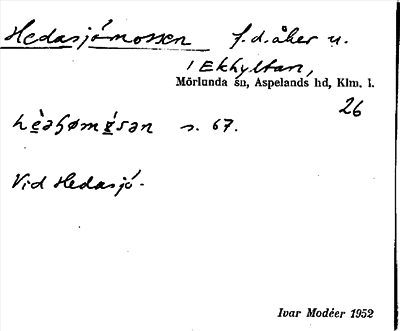 Hedasjömossen f.d. åker u.
i Ekhyltan,
Mörlunda sn, Aspelands hd, Klm. l.
26
s. 67.
Vid Hedasjö.
Ivar Modéer 1952